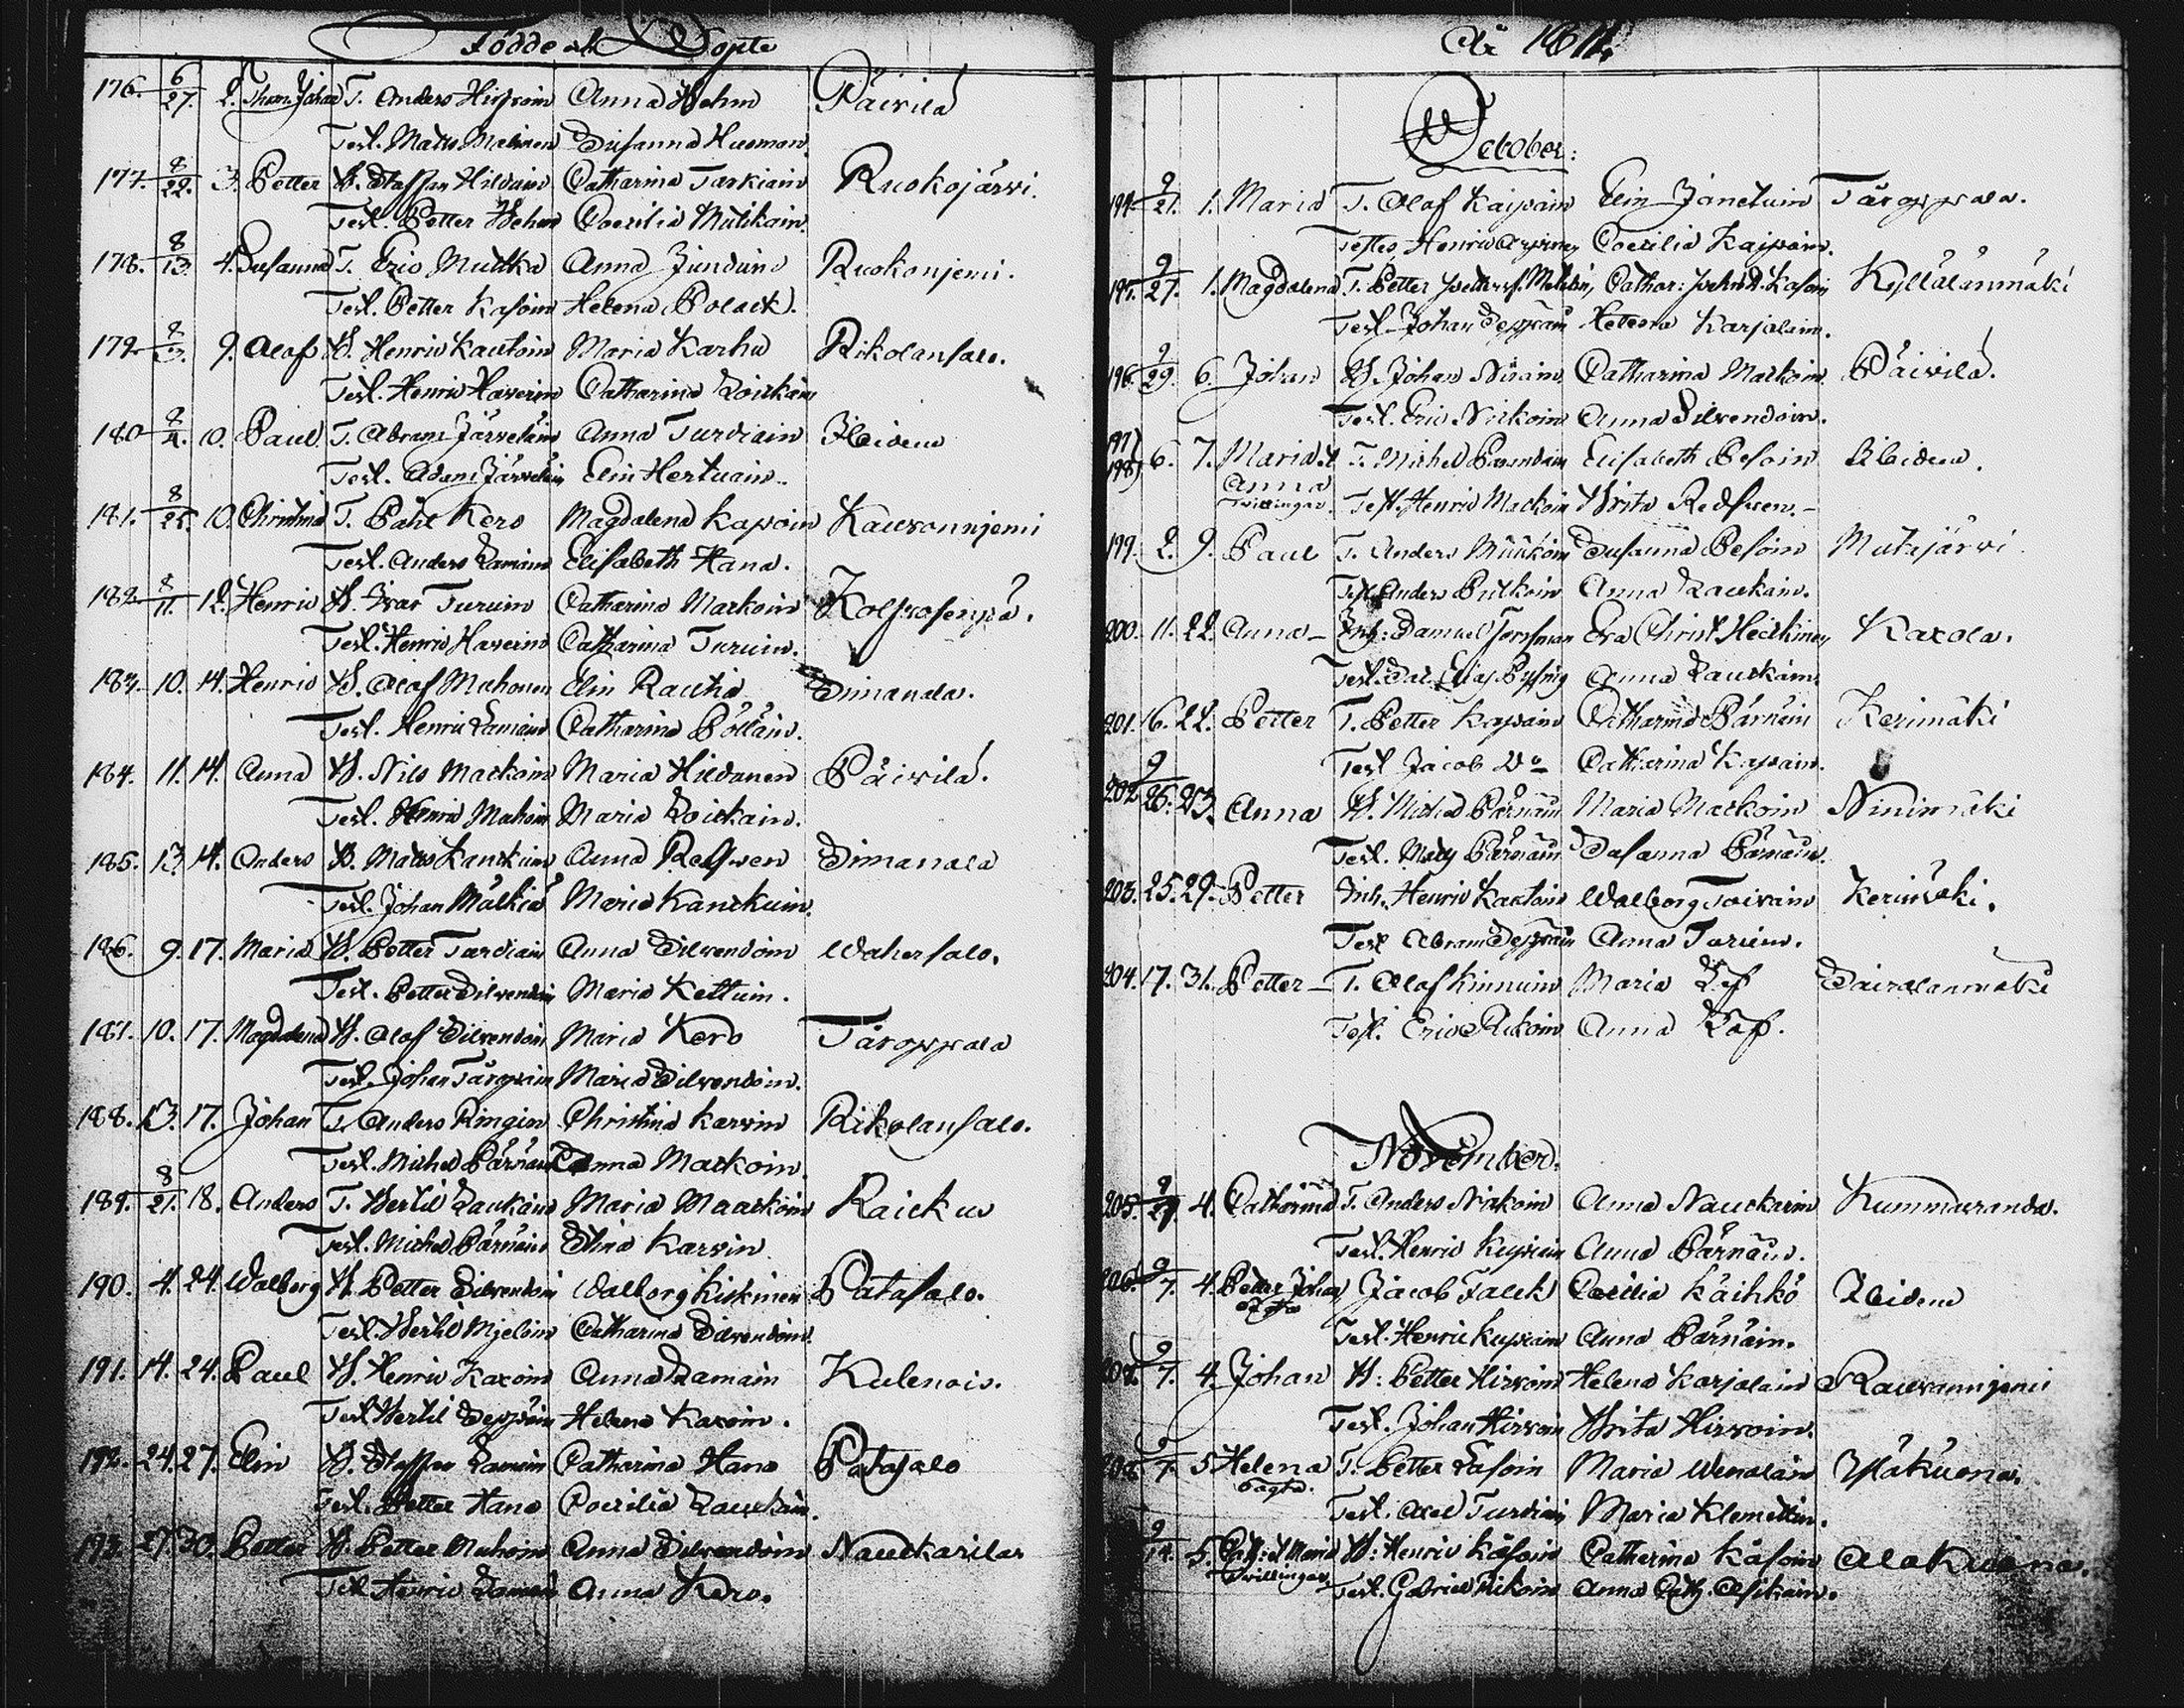 Födde och Döpte
176. 6/27. 2. Thom. Johan T. Anders Hirvoin Anna Hohm Päivilä
Test. Matts Malinen Susanna Husman.
177. 8/22. 3. Petter B. Staffan Hilvain Catharina Tarkiain Ruokojärvi.
Test. Petter Hohm Coecilia Mutikain.
178. 8/13. 4. Susanna T. Eric Mutka Anna Junduin Ruokonjemi.
Test. Petter Kasoin Helena Polack.
179. 9. Olof B. Henric Kautoin Maria Karhu Rikolansalo.
Test. Henric Haverin Catharina Loickain
180. 8/4. 10. Paul T. Abram Järveläin Anna Turviain
Test. Adam Järveläin Elin Hertuain.
181. 8/25. 10. Christina T. Påhl Kero Magdalena Kapoin Kauvonnjemi
Test. Anders Lamain Elisabeth Hana.
182. 8/11. 12. Henric B. Ivar Turuin Catharina Markoin
Test. Henric Haverin Catharina Turuin.
183. 10. 14. Henric B. Olof Muhonen Elin Rautio Simanala.
Test. Henric Lamain Catharina Pölläin.
184. 11. 14. Anna B. Nils Mackoin Maria Hildanen Päivilä.
Test. Henric Muhoin Maria Loickain.
185. 13. 14. Anders B. Matts Kanckuin Anna Redsven Simanala
Test. Johan Mälkiä Maria Kanckuin.
186. 9. 17. Maria B. Petter Tarviain Anna Silvendoin Wahersalo.
Test. Petter Silvendoin Maria Kettuin.
187. 10. 17. Magdalena B. Olof Silvendoin Maria Kero Täroppala
Test. Johan Täropoin Maria Silvendoin.
188. 13. 17. Johan T. Anders Ringin Christina Karvin Rikolansalo.
Test. Michel Pärnäin Anna Mackoin.
189. 8/21. 18. Anders T. Bertil Laukain Maria Maackoin Raickus
Test. Michel Pärnäin Stina Karvin
190. 4. 24. Walborg B. Petter Silvendoin Walborg Kiskinen Patasalo.
Test. Bertil Mjeloin Catharina Silvendoin.
191. 14. 24. Paul B. Henric Kaxoin Anna Lamain Kulenois.
Test. Bertil Seppäin Helena Kaxoin.
192. 24. 27. Elin B. Staffan Lamain Catharina Hana Patasalo
Test. Petter Hana Coecilia Lauckain.
193. 27. 30. Petter B. Petter Muhoin Anna Silvendoin Nauckarila
Test. Henric Lamain Anna Kero.
År 1811.
October:
194. 9/21. 1. Maria T. Olof Kaipain Elin Janetuin Täroppala.
Testes, Henric Coecilia Kaipain.
195. 9/27. 1. Magdalena T. Petter Catharina Kasoin Kyllälänmäki
Test. Johan Seppäin Helena Karjalain.
196. 9/29. 6. Johan B. Johan Nirain Catharina Mackoin Päivilä.
Test. Eric Nickoin Anna Silvendoin.
197) 198) 6. 7. Maria & T. Michel Parandain Elisabeth Pesoin
Anna
Twillingar. Test. Henric Mackoin Brita Redsven.
199. 2. 9. Paul T. Anders Mückoin Susanna Pesoin Mutajärvi.
Test. Anders Pulkoin Anna Lauckain.
200. 11. 22. Anna Inh: Samuel Forssman Eva Christ. Heickinen Kaxola.
Test. Anna Lauckain.
201. 16. 22. Petter T. Petter Kapain Catharina Pärnäin Kerimäki
Test Jacob Do Catharina Kapain.
202. 9/26. 23. Anna B. Michel Pärnäin Maria Mackoin Ninimäki
Test. Mats Pärnäin Susanna Pärnäin.
203. 25. 29. Petter Inh. Henric Kautoin Walborg Toivain Kerimäki.
Test Abram Seppäin Anna Turuin.
204. 17. 31. Petter T. Olof Kinnuin Maria Löf Sairalanmäki
Test. Eric Rickoin Anna Löf.
November.
205. 9/29. 4. Catharina T. Anders Nickoin Anna Nauckarin Kummuranda.
Test. Henric Kupiain Anna Pärnäin.
206. 9/7. 4. Petter Johan Jacob Falck Cecilia Käihkö
oägta
Test. Henric Kupiain Anna Pärnäin.
207. 9/7. 4. Johan B: Petter Hirvoin Helena Karjalain Rauvannjemi
Test. Johan Hirvoin Brita Hirvoin.
208. 9/7. 5 Helena T. Petter Lasoin Maria Wenäläin Yläkuona.
oägta.
Test. Axel Turviain Maria Klemettin.
9/14. 5. Cath: & Maria B: Henric Käsoin Catharina Käsoin Alakuona.
Twillingar. Test. Gabriel Rikoin Anna Cath. Asikain.